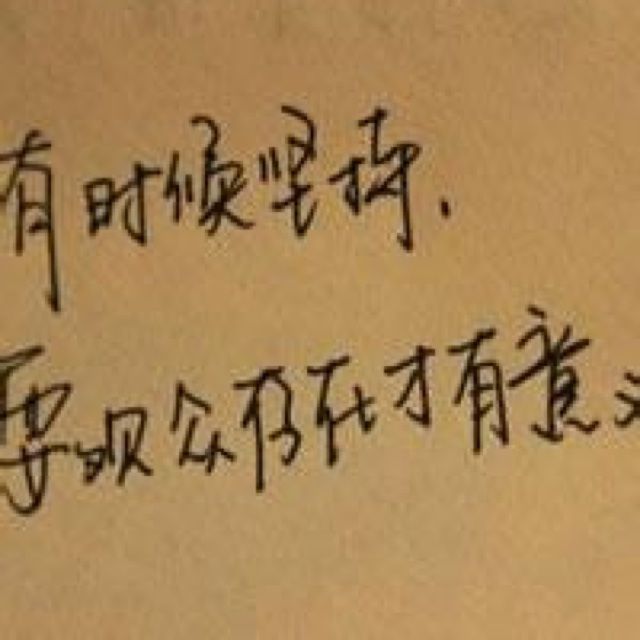 有时候坚持.
要观众存在才有意义